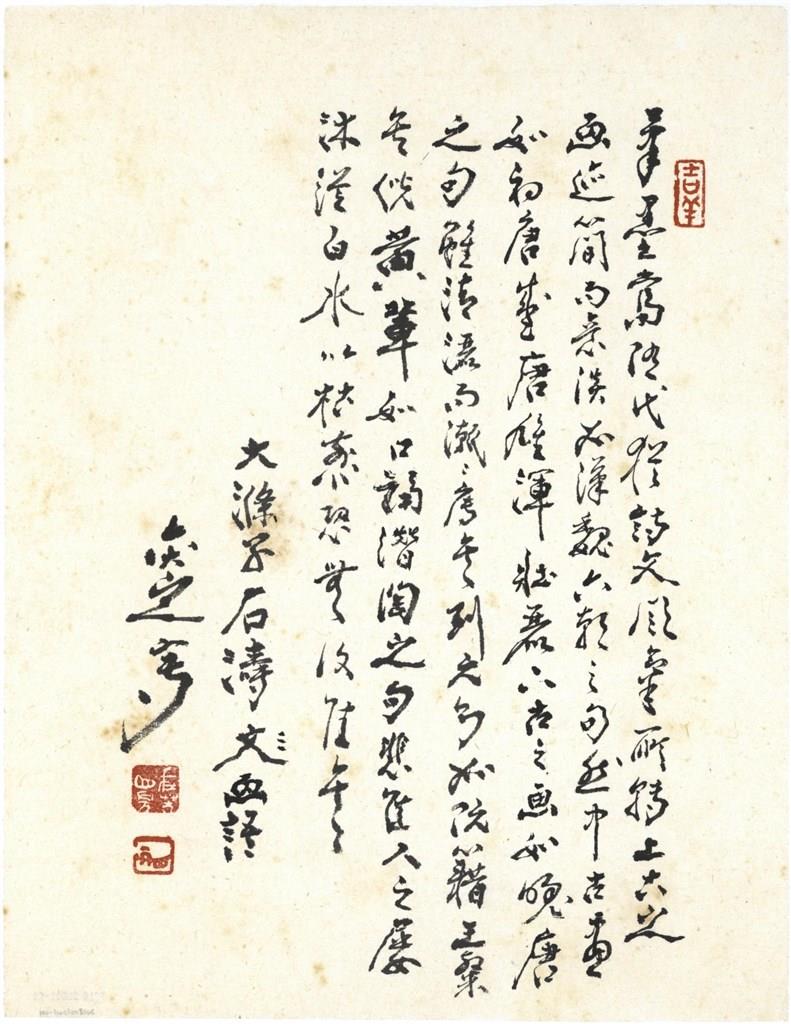 吉羊
筆墨當隨代猶詩文風氣所轉上古之
畫迹簡而意淡如漢魏六朝之句然中古畫
如初唐盛唐雄渾壯麗下古之畫如晚唐
之句雖清灑而漸漸薄矣到元則如阮籍王粲
矣倪黃輩如口誦潛陶之句悲佳人之屢
沐從白水以枯煎恐無復佳矣
大滌子石濤畫語